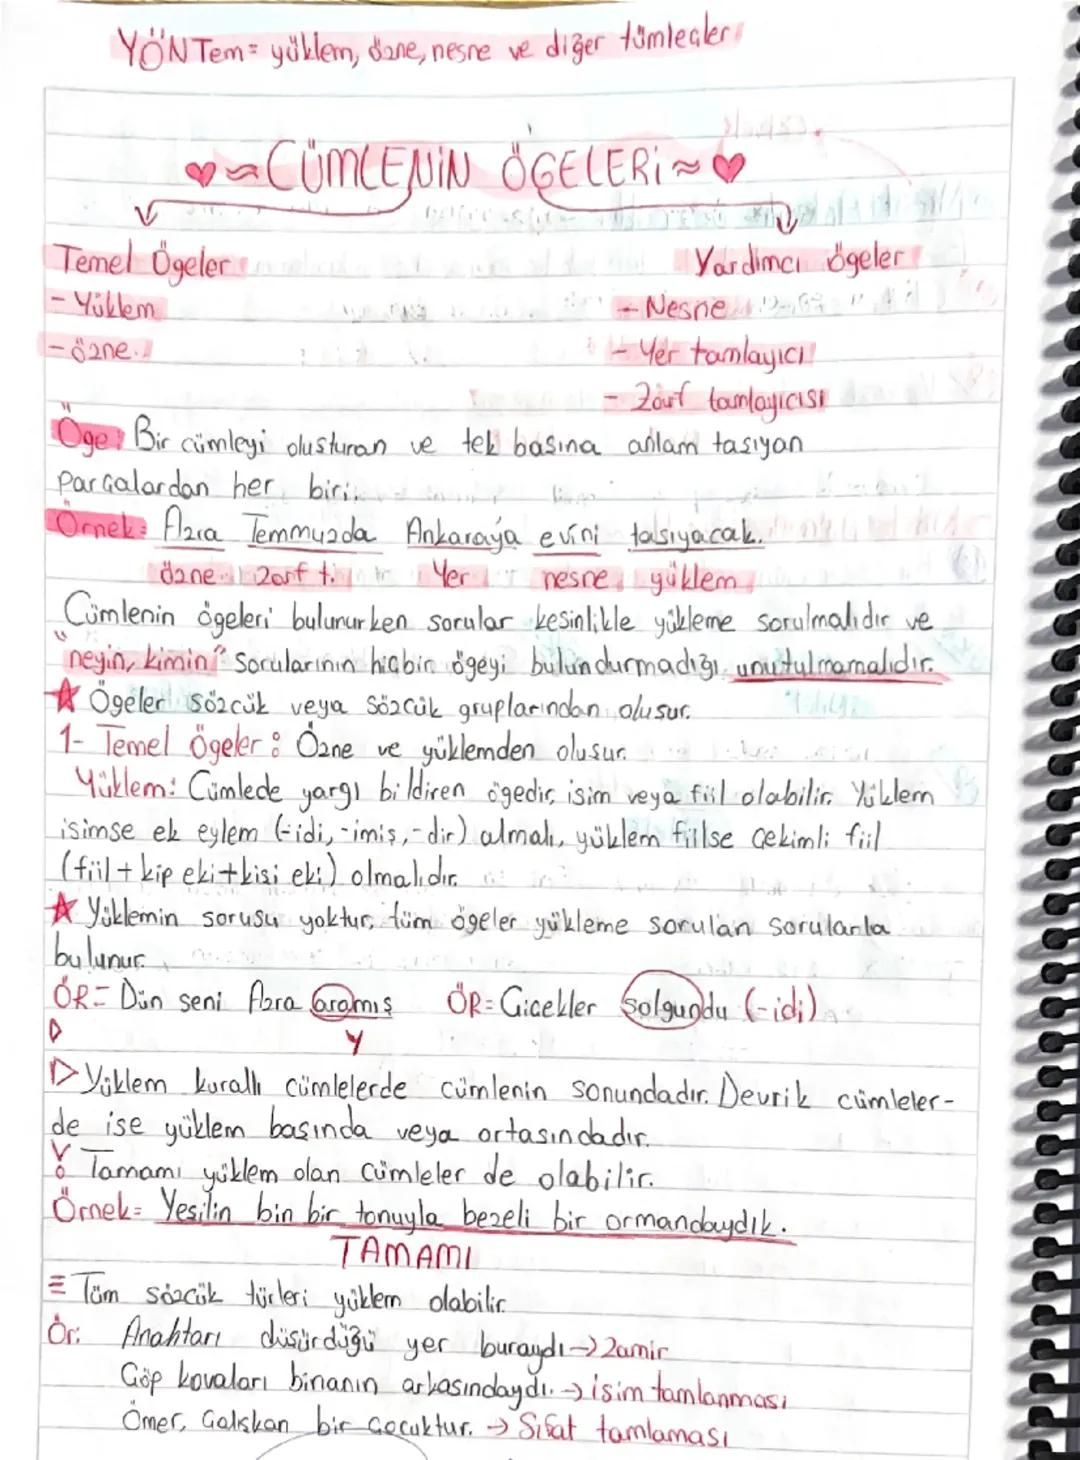 YÖNTem= yüklem, özne, nesne ve diğer tümleçler
♥≈CÜMLENİN ÖGELERİ≈♥
Temel Ögeler
Yardımcı ögeler
- Yüklem
- Nesne
- özne.
- Yer tamlayıcı
- Zarf tamlayıcısı
Öge: Bir cümleyi olusturan ve tek basına anlam tasıyan
Parçalardan her biri.
Örnek: Azra Temmuzda Ankaraya evini tasıyacak.
özne zarf t. Yer nesne yüklem
Cümlenin ögeleri bulunurken sorular kesinlikle yükleme sorulmalıdır ve
"neyin, kimin" sorularının hiçbir ögeyi bulundurmadığı unutulmamalıdır.
★ Ögeler sözcük veya sözcük gruplarından olusur.
1- Temel Ögeler: Özne ve yüklemden olusur.
Yüklem: Cümlede yargı bildiren ögedir, isim veya fiil olabilir. Yüklem
isimse ek eylem (-idi, -imiş, -dir) almalı, yüklem fiilse çekimli fiil
(fiil + kip eki+kisi eki) olmalıdır.
★ Yüklemin sorusu yoktur, tüm ögeler yükleme sorulan sorularla
bulunur.
ÖR= Dün seni Azra aramış ÖR= Çicekler solgundu (-idi)
Y
▷ Yüklem kurallı cümlelerde cümlenin sonundadır. Devrik cümleler-
de ise yüklem basında veya ortasındadır.
Tamamı yüklem olan cümleler de olabilir.
Örnek= Yesilin bin bir tonuyla bezeli bir ormandaydık.
TAMAMI
≡ Tüm sözcük türleri yüklem olabilir.
Ör: Anahtarı düsürdüğü yer buraydı → zamir
Çöp kovaları binanın arkasındaydı. → isim tamlanması
Ömer, Çalıskan bir çocuktur. → Sıfat tamlaması